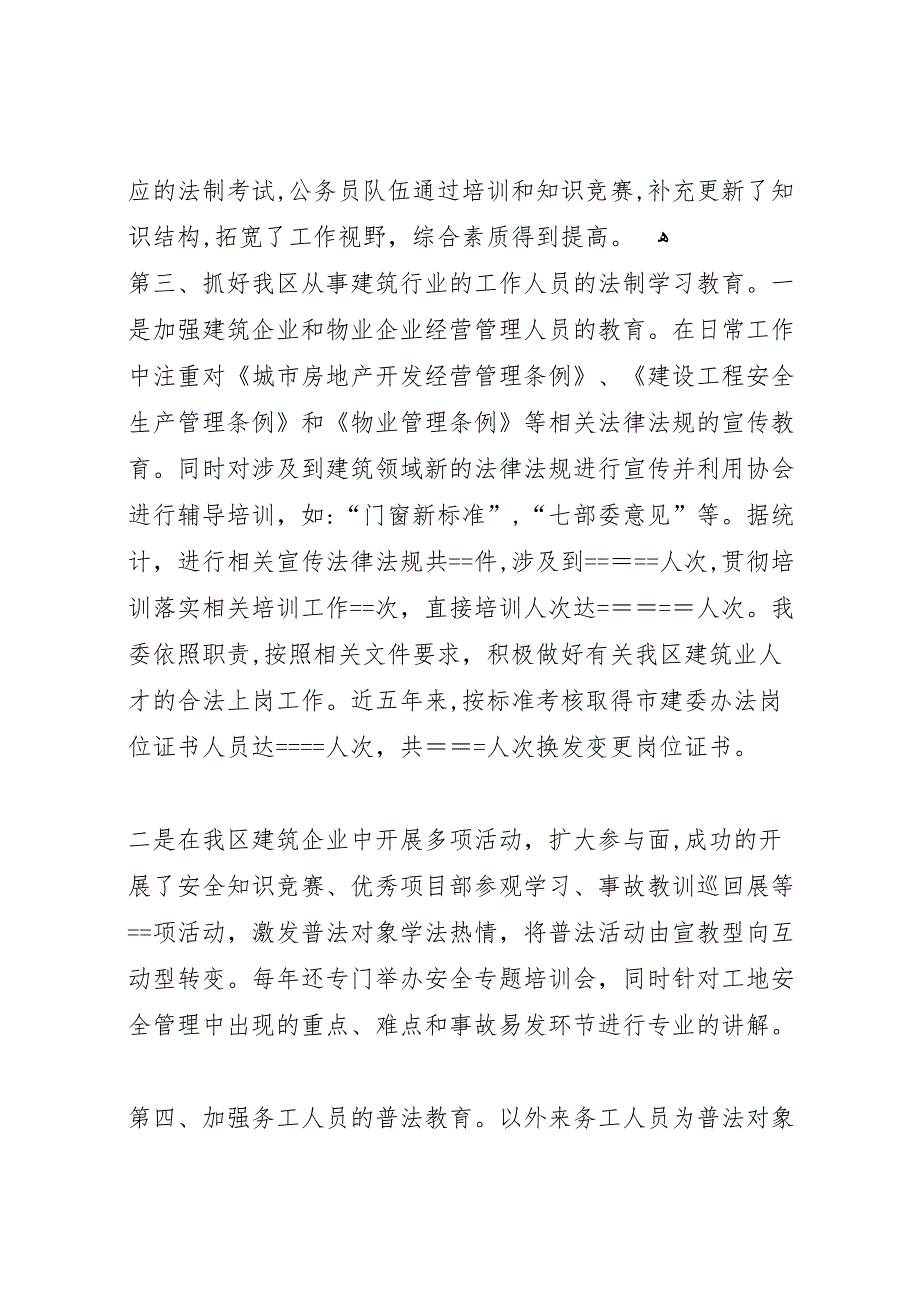 应的法制考试,公务员队伍通过培训和知识竞赛,补充更新了知
识结构,拓宽了工作视野，综合素质得到提高。 ﻫ
第三、抓好我区从事建筑行业的工作人员的法制学习教育。一
是加强建筑企业和物业企业经营管理人员的教育。在日常工作
中注重对《城市房地产开发经营管理条例》、《建设工程安全
生产管理条例》和《物业管理条例》等相关法律法规的宣传教
育。同时对涉及到建筑领域新的法律法规进行宣传并利用协会
进行辅导培训，如:“门窗新标准”,“七部委意见”等。据统
计，进行相关宣传法律法规共==件,涉及到==＝==人次,贯彻培
训落实相关培训工作==次，直接培训人次达=＝＝=＝人次。我
委依照职责,按照相关文件要求，积极做好有关我区建筑业人
才的合法上岗工作。近五年来,按标准考核取得市建委办法岗
位证书人员达====人次，共＝＝=人次换发变更岗位证书。
二是在我区建筑企业中开展多项活动，扩大参与面,成功的开
展了安全知识竞赛、优秀项目部参观学习、事故教训巡回展等
==项活动，激发普法对象学法热情，将普法活动由宣教型向互
动型转变。每年还专门举办安全专题培训会，同时针对工地安
全管理中出现的重点、难点和事故易发环节进行专业的讲解。
第四、加强务工人员的普法教育。以外来务工人员为普法对象